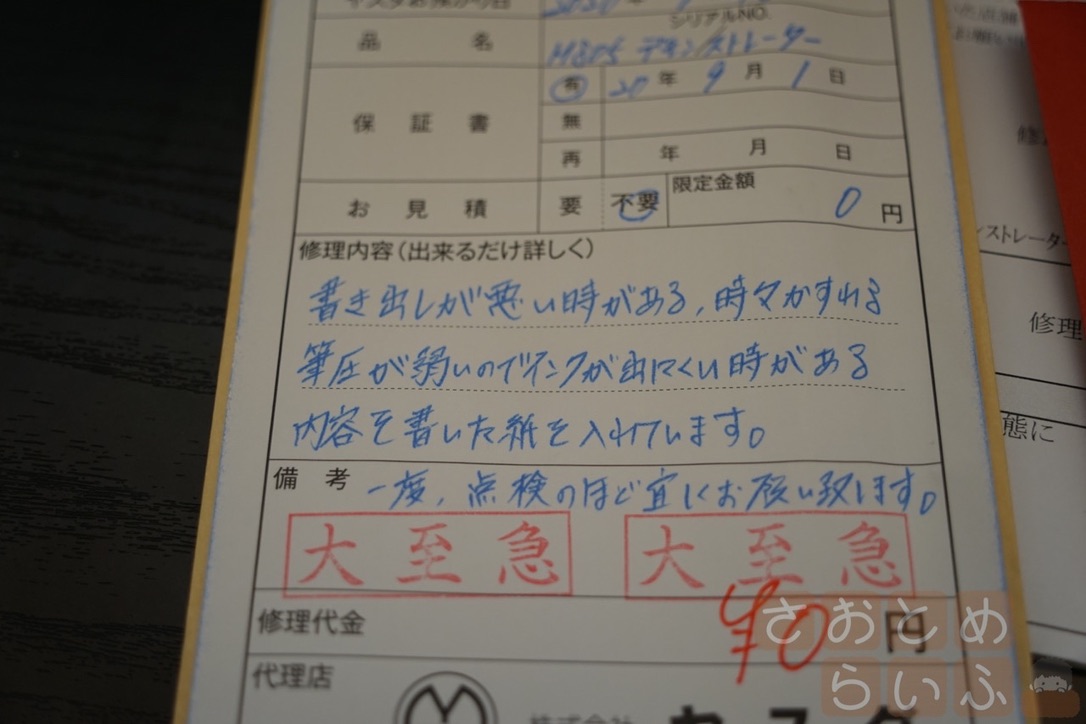 シリアルNO.
品名 M805 デモンストレーター
保証書 有 20年9月1日
無
再 年 月 日
お見積 要 不要 限定金額 0円
修理内容(出来るだけ詳しく)
書き出しが悪い時がある、時々かすれる
筆圧が弱いのでインクが出にくい時がある
内容を書いた紙を入れています。
備考 一度、点検のほど宜しくお願い致します。
大至急 大至急
修理代金 ¥0円
代理店
ストレーター
修理
態に
さおとめ
らいふ